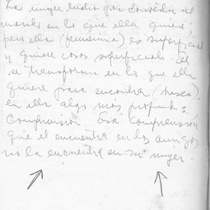 La mujer lucha por convertir al
mundo en lo que ella quiere,
pero ella (femenina) es superficial
y quiere cosas superficiales. él
se transforma en lo que ella
quiere para encontrar (busca)
en ella algo más profundo
Comprensión. Esa comprensión
que el encuentra en los amigos
no la encuentra en su mujer.